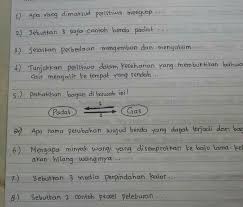 1.) Apa yang dimaksud peristiwa menguap ...
2.) Sebutkan 3 saja contoh benda padat ...
3.) Jelaskan perbedaan mengembun dan menyublim ...
4.) Tunjukkan peristiwa dalam keseharian yang membuktikan bahwa
mengalir ke tempat yang rendah ...
5.) Perhatikan bagan di bawah ini!
Padat Gas
Apa nama perubahan wujud benda yang dapat terjadi dari
6.) Mengapa minyak wangi yang disemprotkan ke baju lama-
akan hilang wanginya ...
7.) Sebutkan 3 media perpindahan kalor ...
8.) Sebutkan 2 contoh proses peleburan